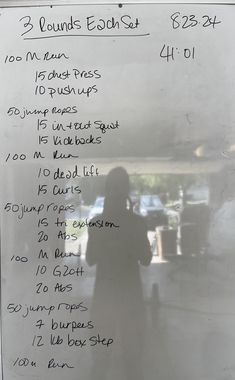 3 Rounds Each Set
8-23-24
41:01
100 M Run
15 chest Press
10 push ups
50 jump ropes
15 in + out Squat
15 Kickbacks
100 M Run
10 dead lift
15 Curls
50 jump ropes
15 tri extension
20 Abs
100 M Run
10 G2OH
20 Abs
50 jump ropes
7 burpees
12 box step
100 M Run